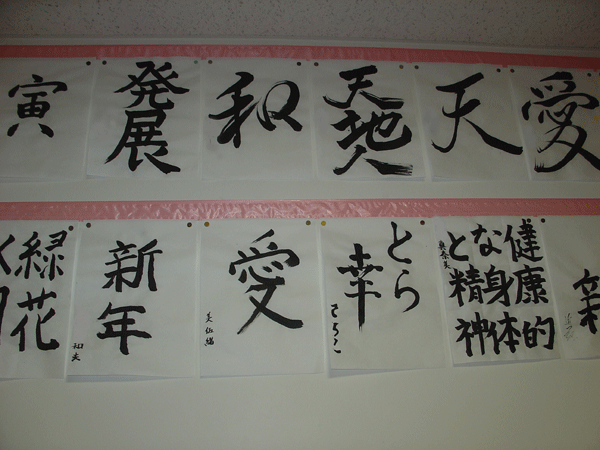 寅
発展
和
天地人
天
愛
緑花
新年
和夫
愛
とら
幸
健康的
な身体
と精神